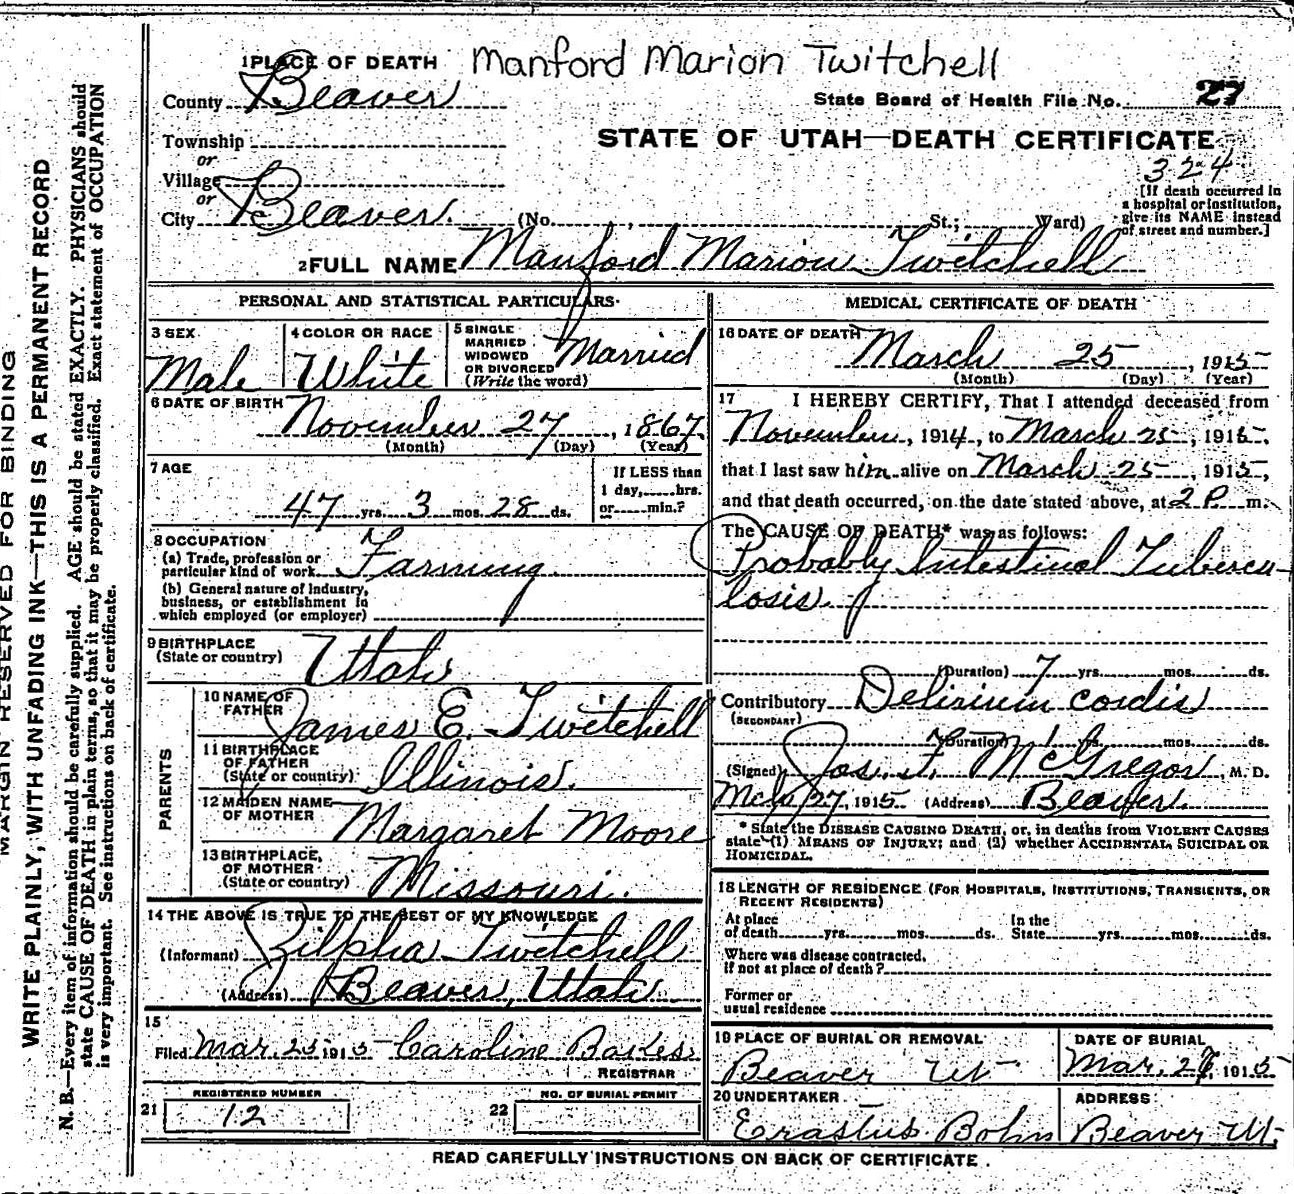 Manford Marion Twitchell
1 PLACE OF DEATH
County Beaver
State Board of Health File No. 27
Township
or
STATE OF UTAH—DEATH CERTIFICATE
324
Village
or
City Beaver. (No. , St.; Ward)
[If death occurred in
a hospital or institution,
give its NAME instead
of street and number.]
2 FULL NAME Manford Marion Twitchell
PERSONAL AND STATISTICAL PARTICULARS
3 SEX
Male
4 COLOR OR RACE
White
5 SINGLE
MARRIED
WIDOWED
OR DIVORCED
(Write the word)
Married
6 DATE OF BIRTH
November 27, 1867
(Month) (Day) (Year)
7 AGE
47 yrs. 3 mos. 28 ds.
If LESS than
1 day,......hrs.
or......min.?
8 OCCUPATION
(a) Trade, profession or
particular kind of work Farming.
(b) General nature of industry,
business, or establishment in
which employed (or employer)
9 BIRTHPLACE
(State or country) Utah
PARENTS
10 NAME OF
FATHER
James E. Twitchell
11 BIRTHPLACE
OF FATHER
(State or country) Illinois.
12 MAIDEN NAME
OF MOTHER Margaret Moore
13 BIRTHPLACE,
OF MOTHER
(State or country) Missouri.
14 THE ABOVE IS TRUE TO THE BEST OF MY KNOWLEDGE
(Informant) Zilpha Twitchell
(Address) Beaver, Utah
15
Filed Mar. 25 1915 Caroline Bakes
REGISTRAR
REGISTERED NUMBER
21 12
NO. OF BURIAL PERMIT
22
MEDICAL CERTIFICATE OF DEATH
16 DATE OF DEATH
March 25, 1915
(Month) (Day) (Year)
17 I HEREBY CERTIFY, That I attended deceased from
November, 1914, to March 25, 1915,
that I last saw him alive on March 25, 1915,
and that death occurred, on the date stated above, at 2 P m.
The CAUSE OF DEATH* was as follows:
Probably Intestinal Tubercu-
losis.
(Duration) 7 yrs. mos. ds.
Contributory Delirium cordis
(SECONDARY)
(Duration) 1 yrs. mos. ds.
(Signed) Jos. F. McGregor, M. D.
Mch 27, 1915 (Address) Beaver.
* State the DISEASE CAUSING DEATH, or, in deaths from VIOLENT CAUSES
state (1) MEANS OF INJURY; and (2) whether ACCIDENTAL, SUICIDAL OR
HOMICIDAL.
18 LENGTH OF RESIDENCE (FOR HOSPITALS, INSTITUTIONS, TRANSIENTS, OR
RECENT RESIDENTS)
At place
of death......yrs......mos......ds.
In the
State......yrs......mos......ds.
Where was disease contracted,
if not at place of death?
Former or
usual residence
19 PLACE OF BURIAL OR REMOVAL
Beaver Ut
DATE OF BURIAL
Mar. 27, 1915
20 UNDERTAKER
Erastus Bohn
ADDRESS
Beaver Ut,
READ CAREFULLY INSTRUCTIONS ON BACK OF CERTIFICATE.
MARGIN RESERVED FOR BINDING
WRITE PLAINLY, WITH UNFADING INK—THIS IS A PERMANENT RECORD
N. B.—Every item of information should be carefully supplied. AGE should be stated EXACTLY. PHYSICIANS should
state CAUSE OF DEATH in plain terms, so that it may be properly classified. Exact statement of OCCUPATION
is very important. See instructions on back of certificate.